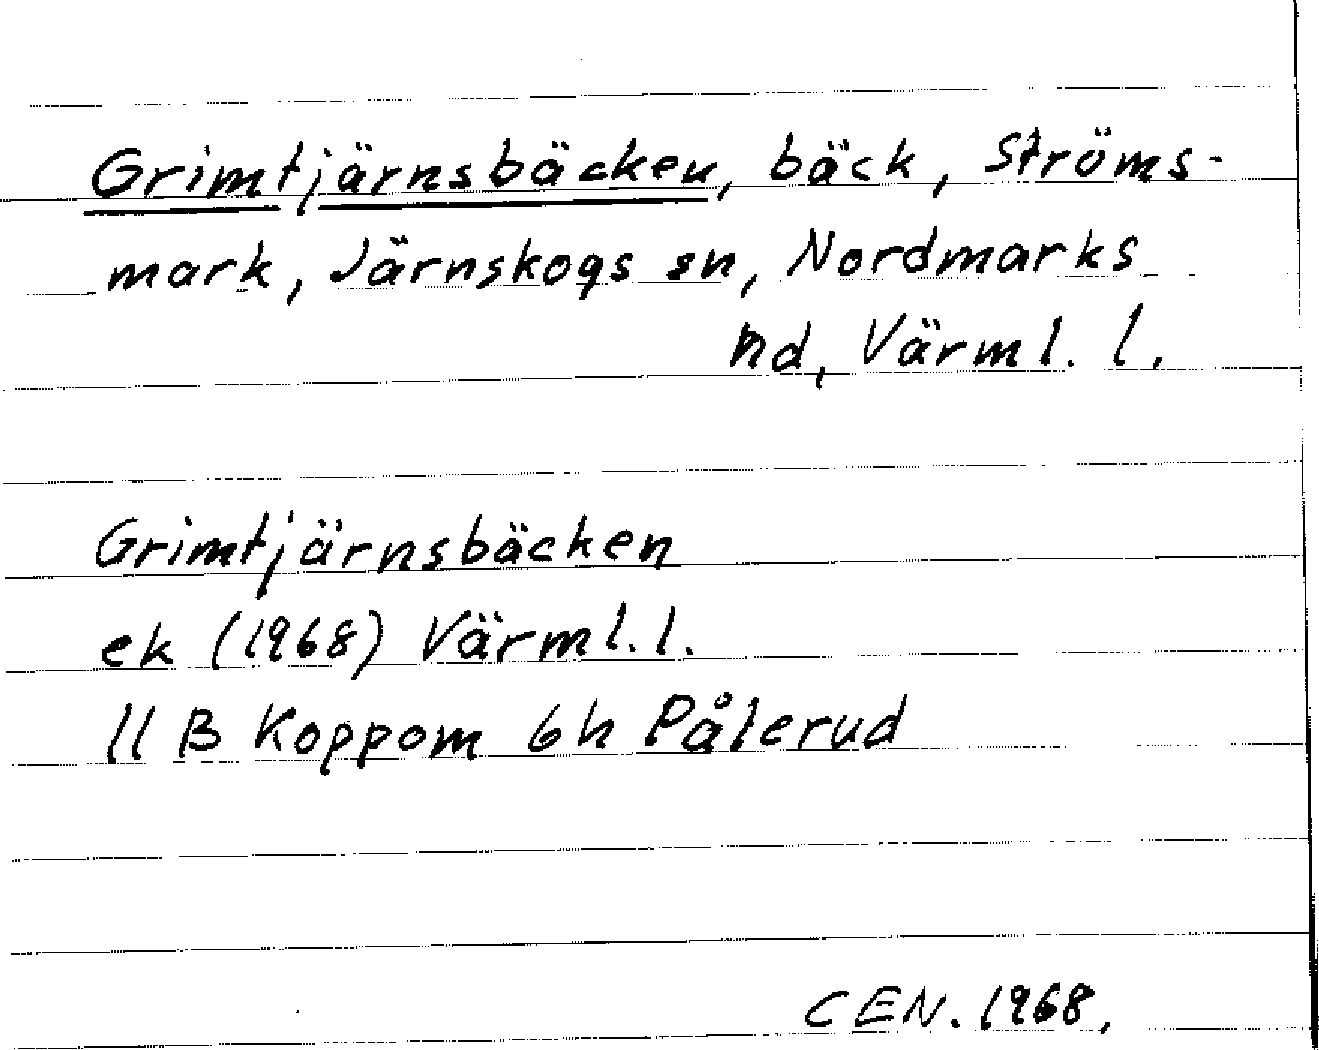 Grimtjärnsbäcken, bäck, Ströms-
mark, Järnskogs sn, Nordmarks
hd, Värml. l.
Grimtjärnsbäcken
ek (1968) Värml. l.
11 B Koppom 6h Pålerud
CEN. 1968.